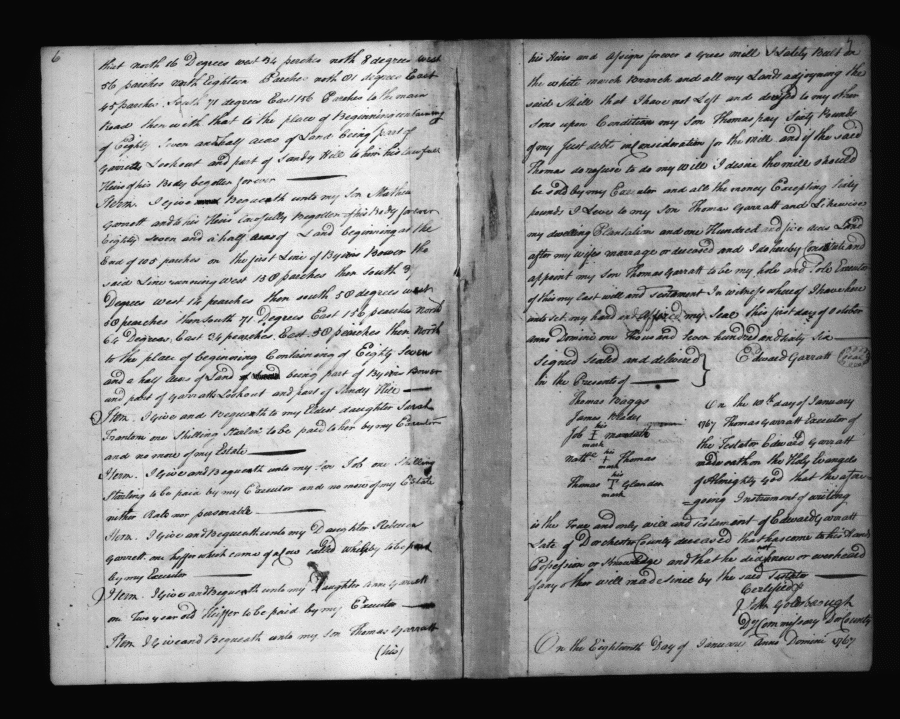 6
that north 16 Degrees west 34 perches north 8 degrees west
56 perches north Eighteen Perches north 81 degrees East
45 perches South 71 degrees East 156 Perches to the main
Road then with that to the place of Beginning containing
of Eighty Seven and half acres of Land being part of
Garretts Lookout and part of Sandy Hill to him his lawfull
Heirs of his Body begotten forever
Item. I give Bequeath unto my Son
Garrett and to his Heirs Lawfully Begotten of his Body forever
Eighty Seven and a half acres of Land beginning at the
End of 105 perches on the first Line of Bower the
said Line running West 130 perches then South
Degrees west 14 pearches then south 50 degrees west
50 pearches then South 71 Degrees East 156 pearches North
64 Degrees East 34 pearches East 30 pearches then North
to the place of beginning Containing of Eighty Seven
and a half acres of Land being part of Bower
and part of Garratts Lookout and part of Sandy Hill
Item. I Give and Bequeath to my Eldest daughter Sarah
one Shilling Starlen to be paid to her by my Executor
and no more of my Estate
Item. I Give and Bequeath unto my son Job one Shilling
Starling to be paid by my Executor and no more of my Estate
neither Rale nor personable
Item. I Give and Bequeath unto my Daughter Rebecca
Garrett one heffer which came of a Cow called to be paid
by my Executor
Item. I Give and Bequeath unto my Daughter Ann Garratt
on Two year old Heiffer to be paid by my Executor
Item I Give and Bequeath unto my Son Thomas Garratt
(his)
7
his Heirs and Assigns forever a Grees mill I Lately Built on
the white march Branch and all my Lands adjoyning the
said Mill that I have not Left and devised to my other
Sons upon Condition my Son Thomas pay Sixty Pounds
of my Just debts in Consideration for the Mill and if the said
Thomas do refuse to do my Will I desire the mill should
be sold by my Executor and all the money Excepting Sixty
pounds I Leve to my Son Thomas Garratt and Likewise
my dwelling Plantation and one Hundred and five acres Land
after my wifes marriage or deceased and I do hereby Constitute and
appoint my Son Thomas Garratt to be my hole and Sole Executor
of this my Last will and Testament In witness whereof I have here
unto set my hand and Affixed my seal this first day of October
anno Domini one Thousand Seven hundred and sixty Six
Signed Seald and delivered
In the Presents of
Edward Garratt (Seal)
Thomas Baggs
James
Job his I mark
Nathl. his + mark Thomas
Thomas his T mark
On the 10th day of January
1767 Thomas Garratt Executor of
the Testator Edward Garratt
made oath on the Holy Evangels
of Almighty God that the afore
=going Instrument of writing
is the True and only will and Testament of Edward Garratt
Late of Dorchester County deceased that has come to his Hands
Possession or Knowledge and that he did not know or
of any other will made since by the said Testator
Certified p
John Goldsborough
Dy Commissary Dor County
On the Eighteenth Day of January Anno Domini 1767